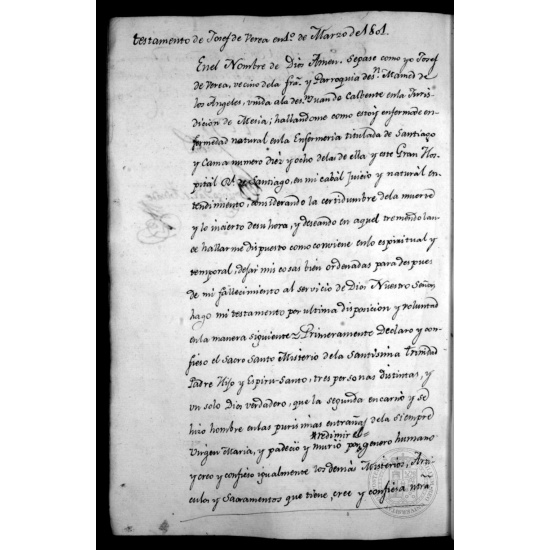 testamento de Josef de Verea en 1º de Marzo de 1801.
En el Nombre de Dios Amen. Sepase como yo Josef
de Verea, vecino de la fra. y Parroquia de Sn. Mamed de
los Angeles, unida a la de Sn. Juan de Calbente en la Juris
dicion de Mesia; hallandome como estoy enfermo de en-
fermedad natural en la Enfermeria titulada de Santiago
y Cama numero diez y ocho de las de ella y este Gran Hos-
pital Rl. de Santiago, en mi cabal juicio y natural en-
tendimiento; considerando la certidumbre de la muerte
y lo incierto de su hora, y deseando en aquel tremendo lan-
ce hallarme dispuesto como conviene en lo espiritual y
temporal, dejar mis cosas bien ordenadas para despues
de mi fallecimiento al servicio de Dios Nuestro Señor
hago mi testamento por ultima disposicion y voluntad
en la manera siguiente Primeramente Declaro y con-
fieso el Sacro Santo Misterio de la Santisima trinidad
Padre Hijo y Espiritu-Santo, tres personas distintas, y
un solo Dios verdadero, que la segunda encarnó y se
hizo hombre en las purisimas entrañas de la siempre
Virgen Maria, y padeció y murió por redimir el genero humano
y creo y confieso igualmente los demas Misterios, Arti-
culos y Sacramentos que tiene, cree y confiesa ntra.